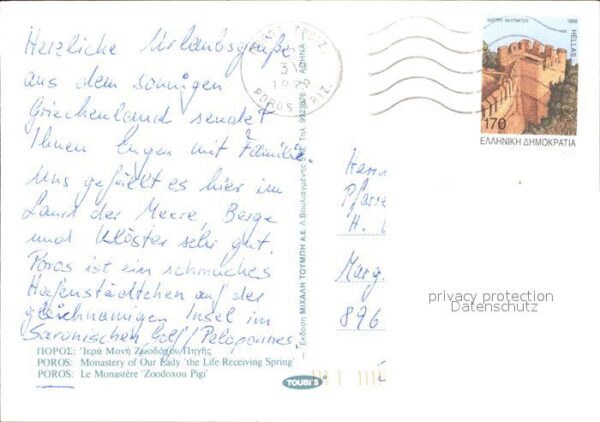 Herzliche Urlaubsgrüße
aus dem sonnigen
Griechenland sendet
Ihnen Eugen mit Familie.
Uns gefällt es hier im
Land der Meere, Berge
und Klöster sehr gut.
Poros ist ein schmuckes
Hafenstädtchen auf der
gleichnamigen Insel im
Saronischen Golf/Peloponnes.
ΠΟΡΟΣ: Ἱερά Μονή Ζωοδόχου Πηγῆς
POROS: Monastery of Our Lady 'the Life-Receiving Spring'
POROS: Le Monastère 'Zoodoxou Pigi'
TOUBI'S
Έκδοση ΜΙΧΑΛΗ ΤΟΥΜΠΗ Α.Ε. Λ.Βουλιαγμένης Τηλ. ΑΘΗΝΑ
POROS
ΚΑΣΤΡΟ ΝΑΥΠΑΚΤΟΥ 1998
HELLAS
170
ΕΛΛΗΝΙΚΗ ΔΗΜΟΚΡΑΤΙΑ
Herrn
Pfarre
H.
Marg.
896
privacy protection
Datenschutz